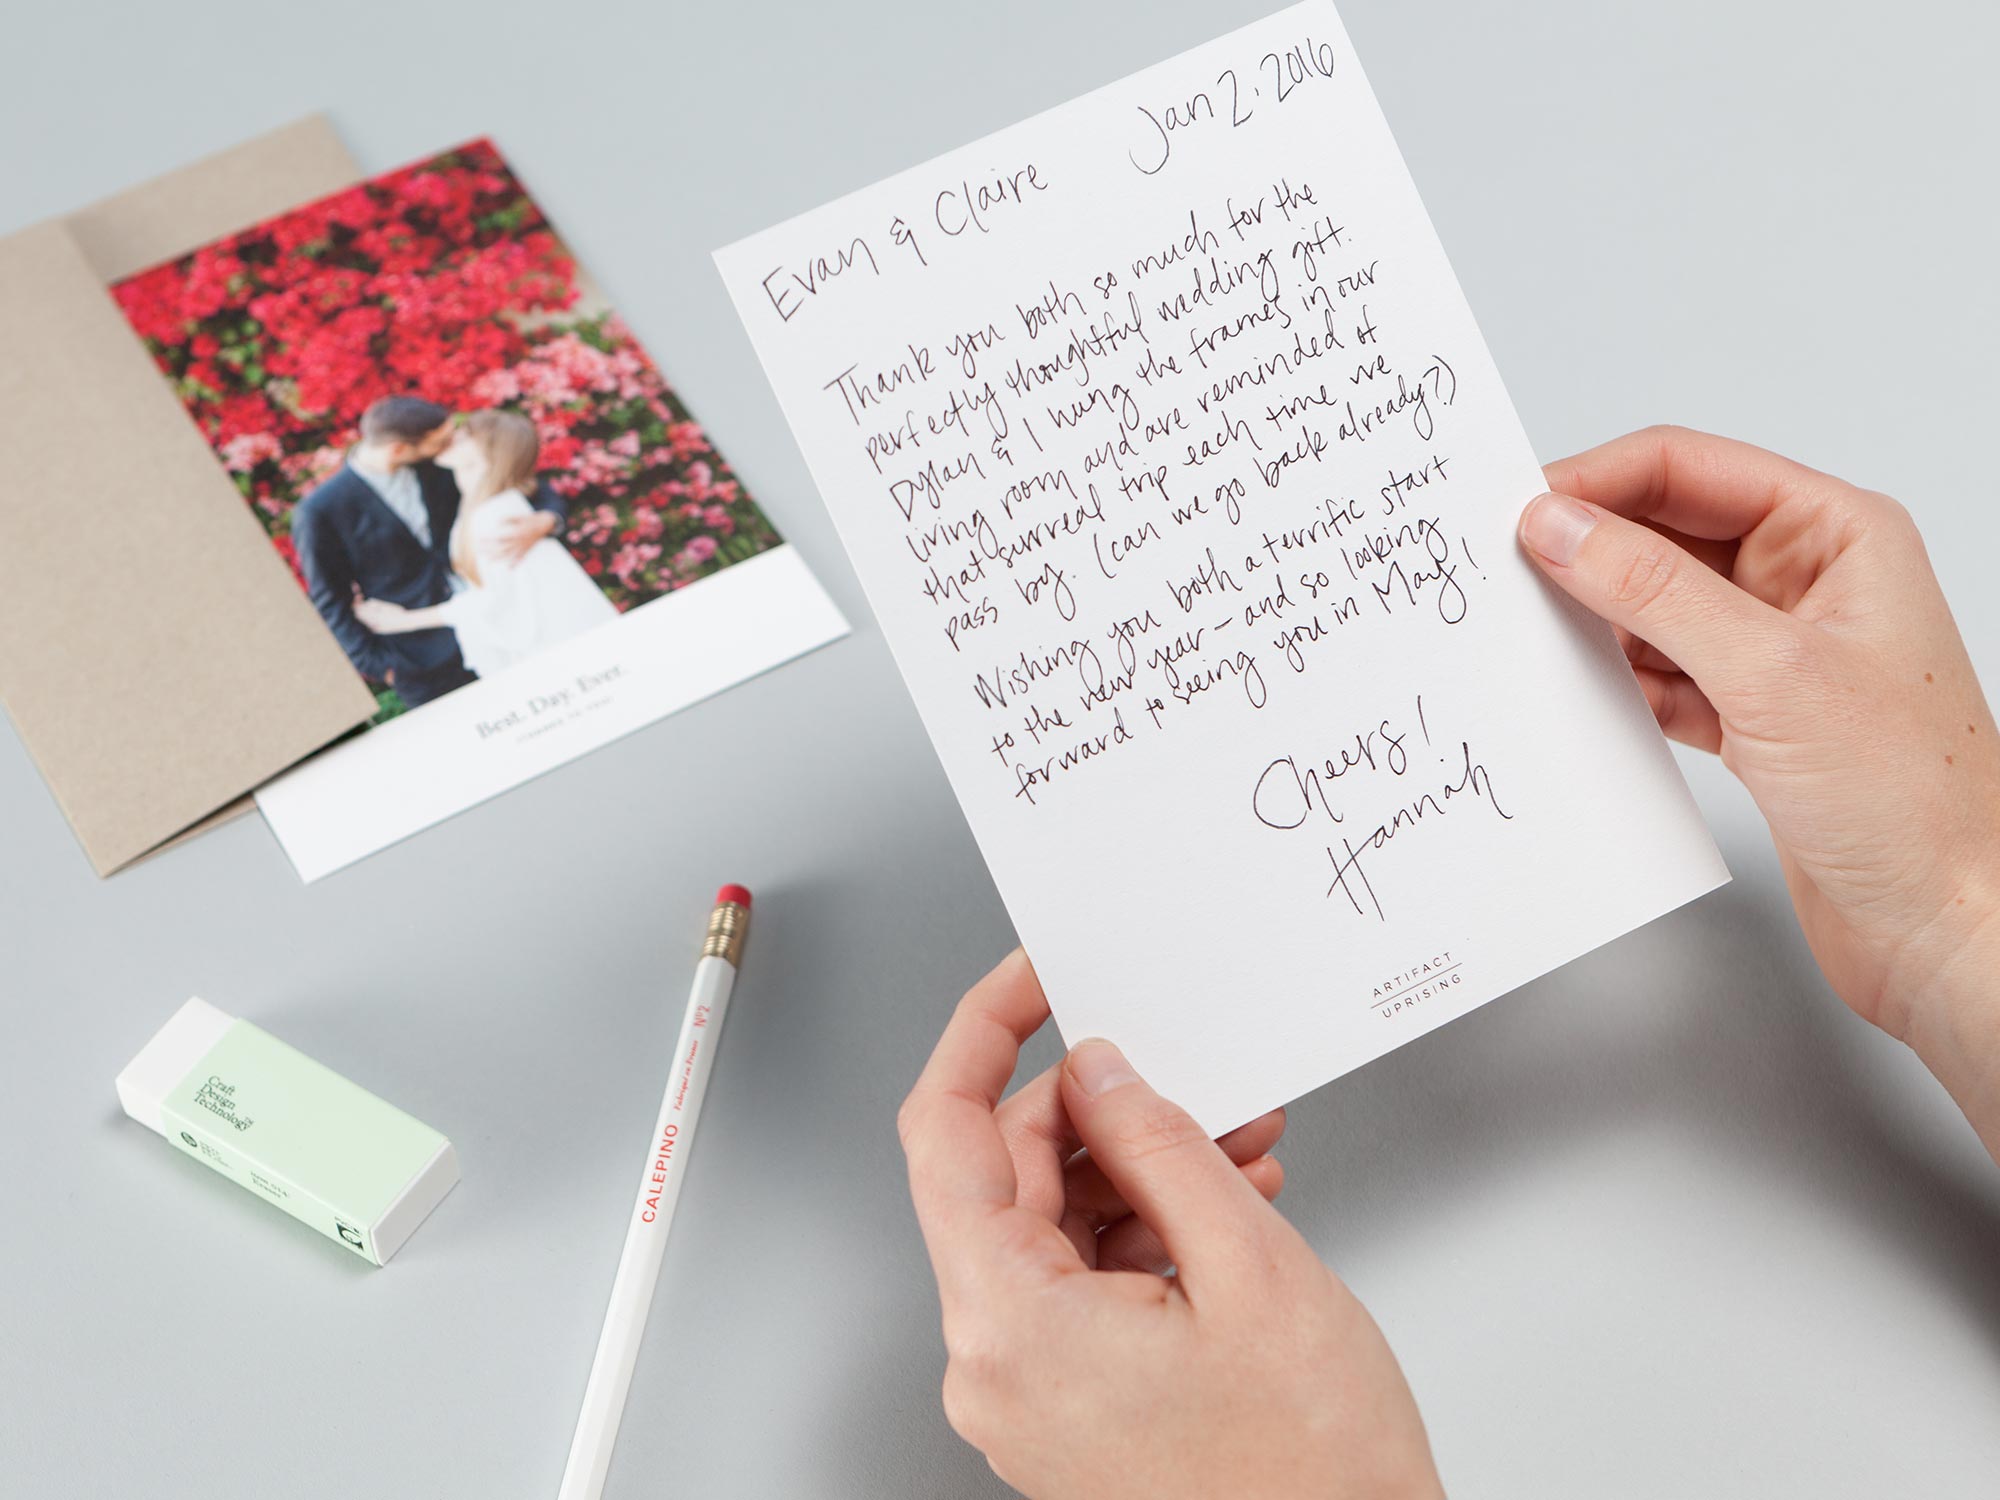 Jan 2, 2016
Evan & Claire
Thank you both so much for the
perfectly thoughtful wedding gift.
Dylan & I hung the frames in our
living room and are reminded of
that surreal trip each time we
pass by. (can we go back already?)
Wishing you both a terrific start
to the new year - and so looking
forward to seeing you in May!
Cheers!
Hannah
ARTIFACT
UPRISING
Best. Day. Ever.
CALEPINO Fabriqué en France Nº2
Craft
Design
Technology™